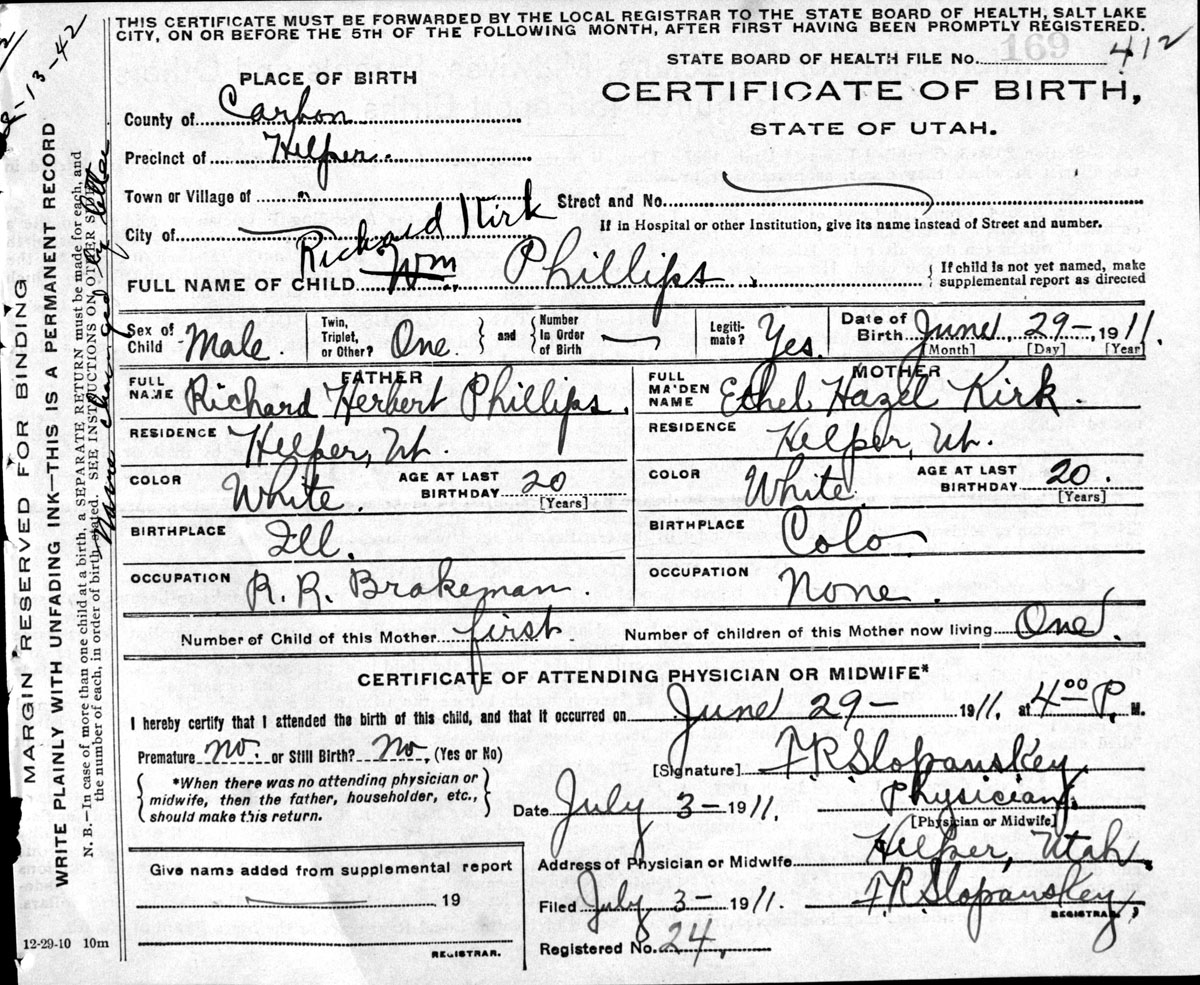 THIS CERTIFICATE MUST BE FORWARDED BY THE LOCAL REGISTRAR TO THE STATE BOARD OF HEALTH, SALT LAKE
CITY, ON OR BEFORE THE 5TH OF THE FOLLOWING MONTH, AFTER FIRST HAVING BEEN PROMPTLY REGISTERED.
169
STATE BOARD OF HEALTH FILE No. 412
PLACE OF BIRTH
CERTIFICATE OF BIRTH,
STATE OF UTAH.
County of Carbon
Precinct of Helper.
Town or Village of "
Street and No.
City of
If in Hospital or other Institution, give its name instead of Street and number.
Richard Kirk
FULL NAME OF CHILD Wm Phillips
If child is not yet named, make
supplemental report as directed
Sex of Child Male. Twin, Triplet, or Other? One. and Number In Order of Birth Legiti-mate? Yes. Date of Birth June 29- 1911.
[Month] [Day] [Year]
FATHER
FULL NAME Richard Herbert Phillips.
RESIDENCE Helper, Ut.
COLOR White. AGE AT LAST BIRTHDAY 20
[Years]
BIRTHPLACE Ill.
OCCUPATION R. R. Brakeman.
MOTHER
FULL MAIDEN NAME Ethel Hazel Kirk.
RESIDENCE Helper, Ut.
COLOR White. AGE AT LAST BIRTHDAY 20.
[Years]
BIRTHPLACE Colo
OCCUPATION None.
Number of Child of this Mother first Number of children of this Mother now living One.
CERTIFICATE OF ATTENDING PHYSICIAN OR MIDWIFE*
I hereby certify that I attended the birth of this child, and that it occurred on June 29- 1911. at 4.00 P. M.
Premature no. or Still Birth? No, (Yes or No)
*When there was no attending physician or
midwife, then the father, householder, etc.,
should make this return.
[Signature] F R Slopanskey
Date July 3- 1911. Physician.
[Physician or Midwife]
Address of Physician or Midwife Helper, Utah
Filed July 3- 1911. F R Slopanskey,
REGISTRAR
Registered No. 24,
Give name added from supplemental report
19
REGISTRAR.
12-29-10 10m
MARGIN RESERVED FOR BINDING
WRITE PLAINLY WITH UNFADING INK—THIS IS A PERMANENT RECORD
N. B.—In case of more than one child at a birth, a SEPARATE RETURN must be made for each, and
the number of each, in order of birth, stated. SEE INSTRUCTIONS ON OTHER SIDE
Name changed by letter
-13-42